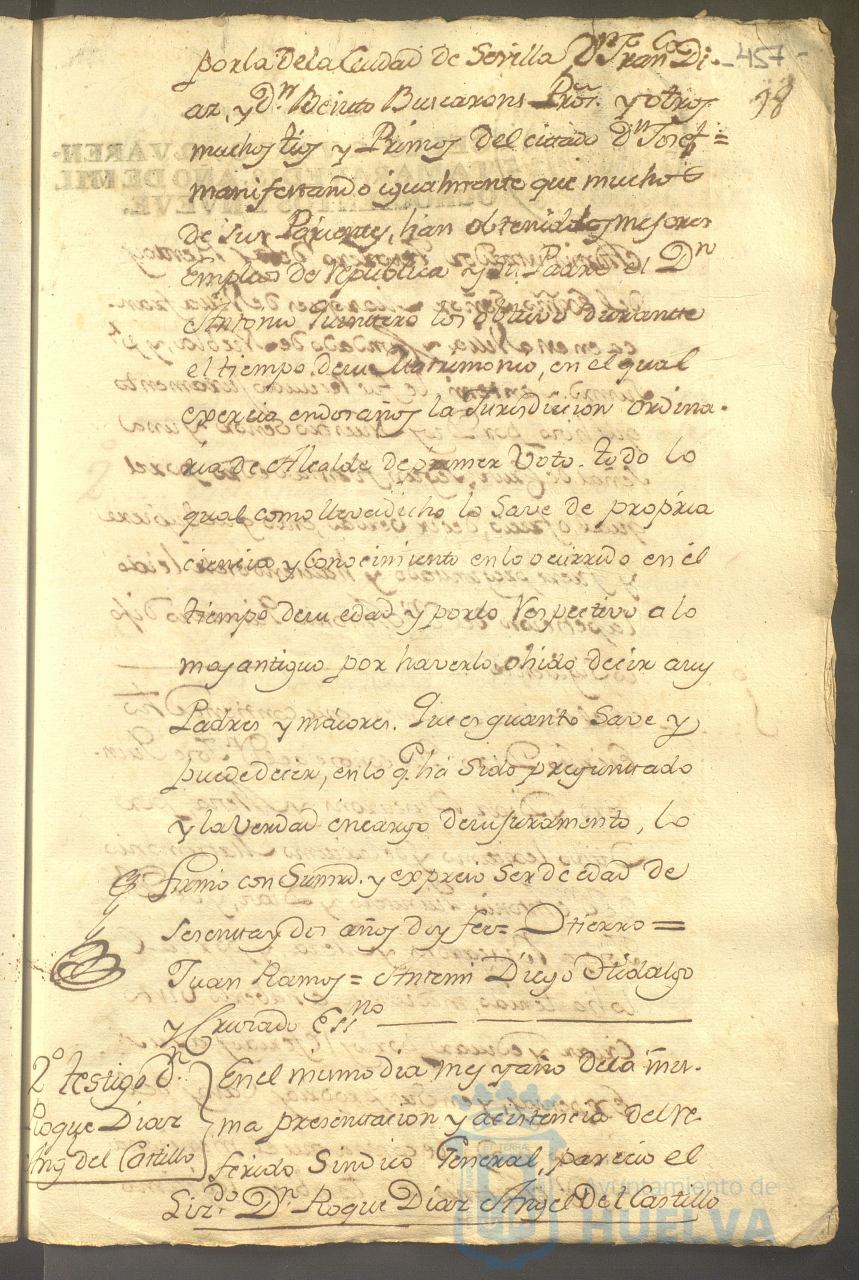 -457-
98
por la de la Ciudad de Sevilla Dn Franco Di-
az, y Dn Benito Buscarons Pros. y otros
muchos tios y Primos del citado Dn Josef=
manifestando igualmente que muchos
de sus Parientes, han obtenido los mejores
Empleos de republica y su Padre el Dn
Antonio los obtuvo durante
el tiempo de su Matrimonio, en el qual
exercio en dos años la Jurisdiccion ordina-
ria de Alcalde de primer Voto. todo lo
qual como lleva dicho lo Save de propria
ciencia y Conocimiento en lo ocurrido en el
tiempo de su edad y por lo respectivo a lo
mas antiguo por haverlo ohido decir a sus
Padres y maiores. Que es quanto Save y
puede decir, en lo q. há sido preguntado
y la Verdad en cargo de su juramento, lo
firmó con Sumrd. y expreso ser de edad de
sesenta y dos años doy fee= Dtierro=
Juan Ramos= Antemi Diego Hidalgo
y Cruzado Essno
2º testigo Dn
Roque Diaz
Ang del Castillo
En el mismo dia mes y año de la mis-
ma presentacion y asistencia del re-
ferido Sindico General, parecio el
Lizdo. Dn Roque Diaz Angel Del Castillo
Ayuntamiento de
HUELVA